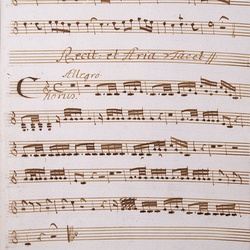 Recit. et Aria tacet
Allegro.
Chorus.